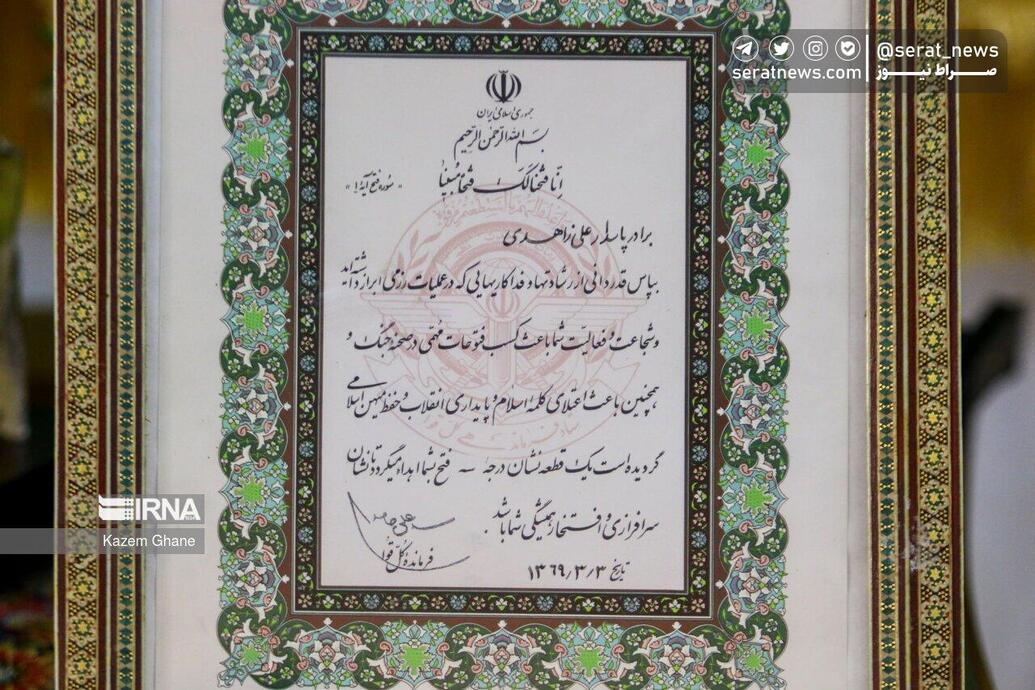 @serat_news
seratnews.com
صراط نیوز
جمهوری اسلامی ایران
بسم الله الرحمن الرحیم
انا فتحنا لک فتحا مبینا "سوره فتح آیه ۱"
برادر پاسدار علی زاهدی
بپاس قدردانی از رشادتها و فداکاریهایی که در عملیات رزمی ابراز داشته‌اید
و شجاعت و فعالیت شما باعث کسب فتوحات مهمی در صحنه جنگ و
همچنین باعث اعتلای کلمه اسلام و پایداری انقلاب و حفظ میهن اسلامی
گردیده است یک قطعه نشان درجه ۳ فتح بشما اهداء میگردد تا نشان
سرافرازی و افتخار همیشگی شما باشد.
فرمانده کل قوا
تاریخ ۱۳۶۹/۳/۳
IRNA
Kazem Ghane